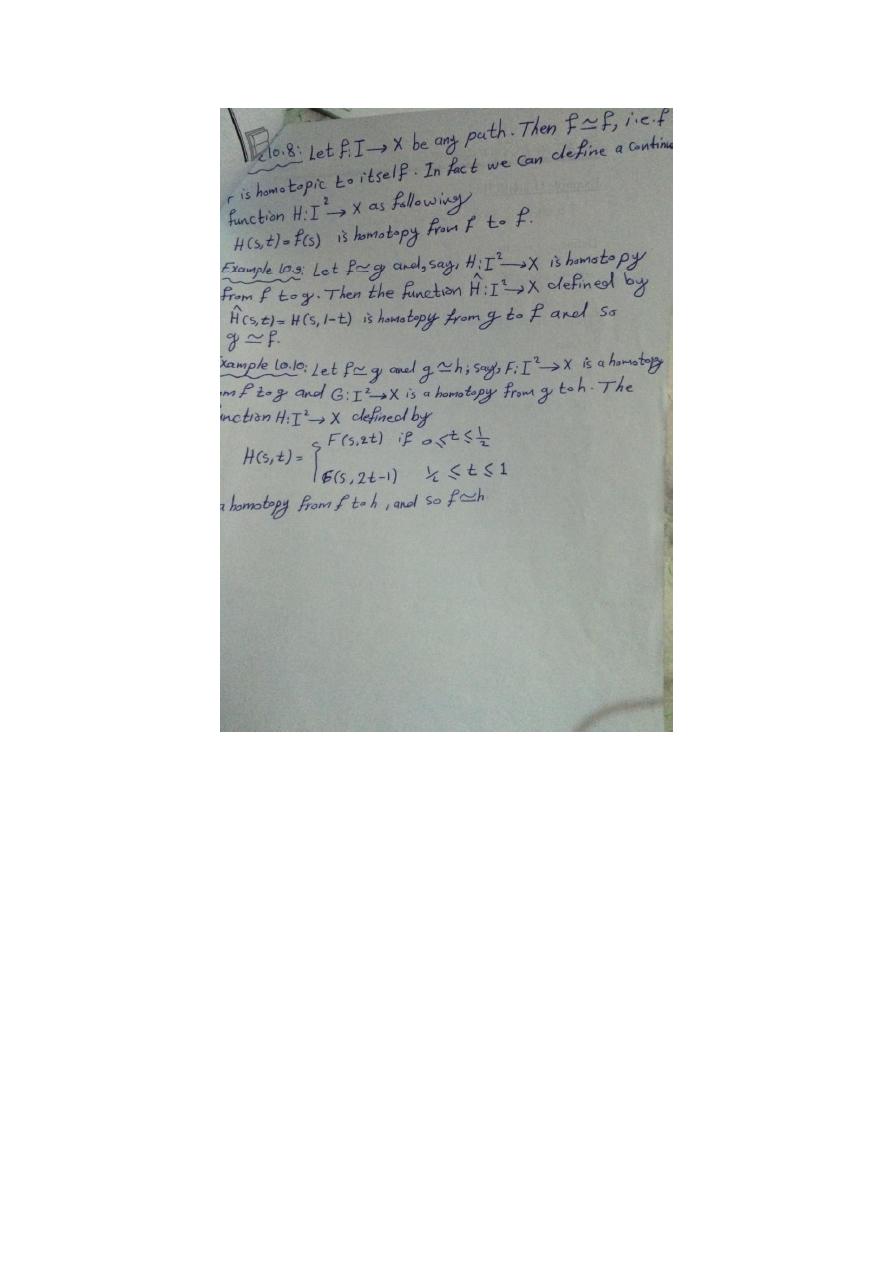 10.8: Let f: I → X be any path. Then f ≃ f, i.e. f
is homotopic to itself. In fact we can define a continu
function H: I² → X as following
H(s,t) = f(s) is homotopy from f to f.
Example 10.9: Let f ≃ g and, say, H: I² → X is homotopy
from f to g. Then the function Ĥ: I² → X defined by
Ĥ(s,t) = H(s, 1-t) is homotopy from g to f and so
g ≃ f.
xample 10.10: Let f ≃ g and g ≃ h; say, F: I² → X is a homotopy
om f to g and G: I² → X is a homotopy from g to h. The
nction H: I² → X defined by
F(s, 2t) if 0 ≤ t ≤ ½
H(s,t) = {
G(s, 2t-1) ½ ≤ t ≤ 1
a homotopy from f to h, and so f ≃ h